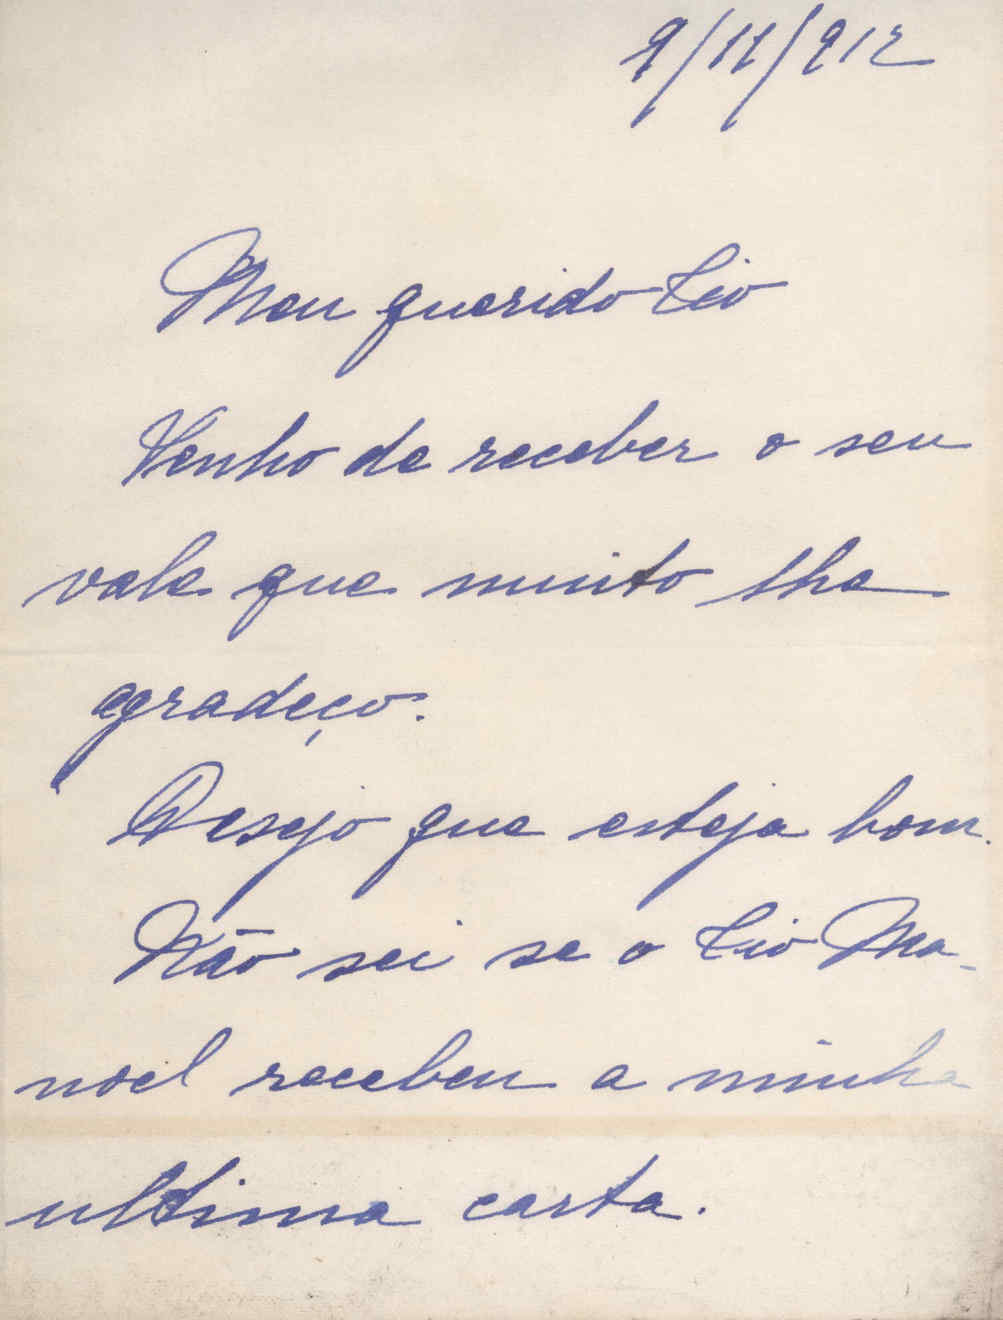 9/11/912
Meu querido Tio
Venho de receber o seu
vale que muito lhe
agradeço.
Desejo que esteja bom.
Não sei se o Tio Ma-
noel recebeu a minha
ultima carta.